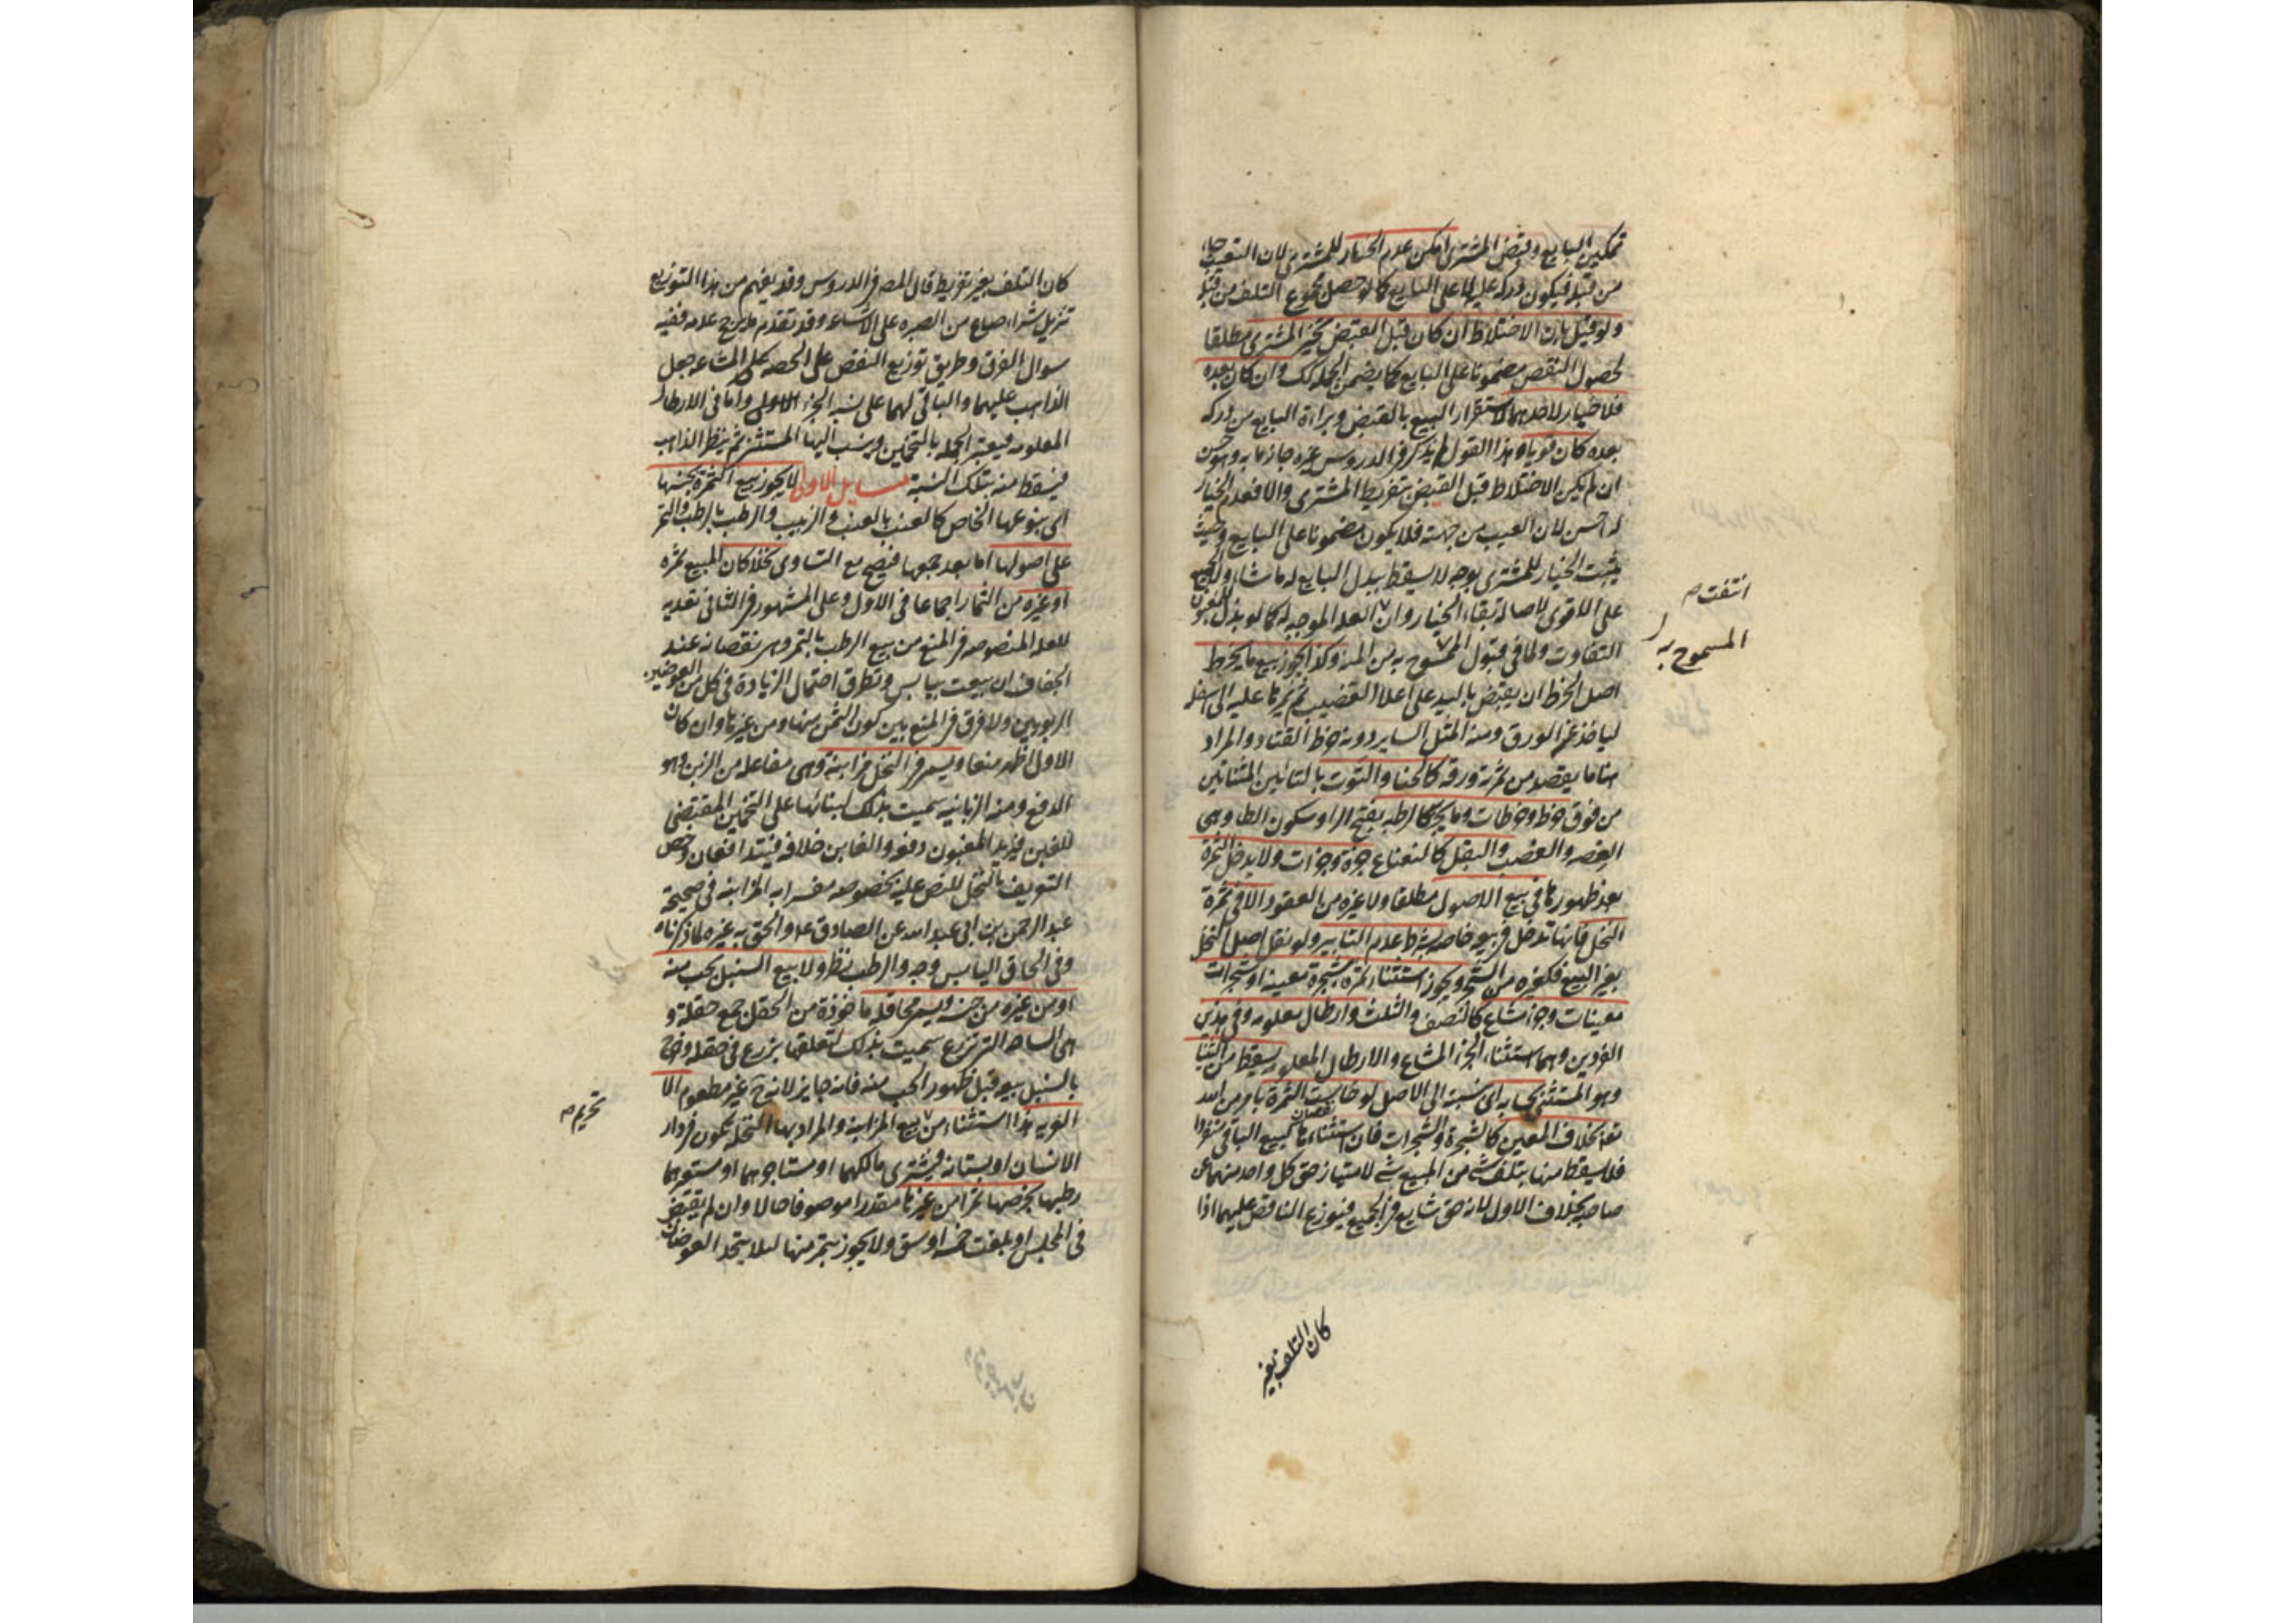 تمكين البايع وقبض المشترى امكن عدم الخيار للمشترى لان التعيب جاء
من قبله فيكون دركه عليه لا على البايع كما لو حصل مجموع التلف من قبله
ولو قيل بان الاختلاط ان كان قبل القبض تخير المشترى مطلقا
لحصول النقص مضمونا على البايع كما يضمن الجملة كك وان كان بعده
فلا خيار لاحدهما لاستقرار البيع بالقبض وبراءة البايع من دركه
بعده كان قويا وهذا القول لم يذكر فى الدروس غيره جازما به وهو حسن
ان لم يكن الاختلاط قبل القبض بتفريط المشترى والا فعدم الخيار
له احسن لان العيب من جهته فلا يكون مضمونا على البايع وحيث
يثبت الخيار للمشترى بوجه لا يسقط ببذل البايع له ما شاء ولا الجميع
على الاقوى لاصالة بقاء الخيار وان العلة الموجبة له كما لو بذل للمغبون
التفاوت ولما فى قبول المسموح به من المنة وكذا يجوز بيع ما يخرط
اصل الخرط ان يقبض باليد على اعلا القضيب ثم يمرها عليه الى اسفله
لياخذ عنه الورق ومنه المثل الساير دونه خرط القتاد والمراد
هنا ما يقصد من ثمرته ورقه كالحنا والتوت بالتائين المثناتين
من فوق خرطة وخرطات وما يجز كالرطبة بفتح الراء وسكون الطاء وهى
الفصه والقضب والبقل كالنعناع جزة وجزات ولا يدخل الثمرة
بعد ظهورها فى بيع الاصول مطلقا ولا غيره من العقود الا فى ثمرة
النخل فانها تدخل فى بيعه خاصة بشرط عدم التابير ولو نقل اصل النخل
بغير البيع فكغيره من الشجر ويجوز استثناء ثمرة شجرة معينة او شجرات
معينات وجزء مشاع كالنصف والثلث وارطال معلومة وفى هذين
الفردين وهما استثناء الجزء المشاع والارطال المعلومة يسقط من الثنيا
وهو المستثنى بحسابه اى نسبته الى الاصل لو خاست الثمرة بامر من الله
تعا بخلاف المعين كالشجرة والشجرات فان استثناءها كبيع الباقى منفردا
نقصان
فلا يسقط منها بتلف شى من المبيع شى لامتياز حق كل واحد منهما عن
صاحبه بخلاف الاول لانه حق شايع فى الجميع فيوزع الناقص عليهما اذا
انتفت ص
المسموح به
كان التلف بغير
كان التلف بغير تفريط قال المص فى الدروس وقد يفهم من هذا التوزيع
تنزيل شراء صاع من الصبره على الاشاعه وقد تقدم ما يرجح عدمه ففيه
سوال الفرق وطريق توزيع النقص على الحصه المشاعه جعل
الذاهب عليهما والباقى لهما على نسبه الجزء الاولى واما فى الارطال
المعلومه فيعتبر الجمله بالتخمين وينسب اليها المستثنى ثم ينظر الذاهب
فيسقط منه بتلك النسبة مسايل الاولى لا يجوز بيع الثمرة بجنسها
اى بنوعها الخاص كالعنب بالعنب والزبيب والرطب بالرطب والتمر
على اصولها اما بعد جمعها فيصح مع التساوى نخلا كان المبيع ثمره
او غيره من الثمار اجماعا فى الاول وعلى المشهور فى الثانى تعديه
للعلة المنصوصه فى المنع من بيع الرطب بالتمر وهى نقصانه عند
الجفاف ان بيعت بيابس وتطرق احتمال الزيادة فى كل من العوضين
الربويين ولا فرق فى المنع بين كون الثمن منها ومن غيرها وان كان
الاول اظهر منعا ويسمى فى النخل مزابنة وهى مفاعله من الزبن وهو
الدفع ومنه الزبانيه سميت بذلك لبنائها على التخمين المقتضى
للغبن فيريد المغبون دفعه والغابن خلافه فيتدافعان وخص
التعريف بالنخل للنص عليه بخصوصه مفسرا به المزابنة فى صحيحة
عبد الرحمن بن ابى عبد الله عن الصادق عه والحق به غيره لما ذكرناه
وفى الحاق اليابس وجه والرطب نظر ولا بيع السنبل بحب منه
او من غيره من جنسه ويسمى محاقلة ماخوذة من الحقل جمع حقلة و
هى الساحه التى تزرع سميت بذلك لتعلقها بزرع فى حقلة وخرج
بالسنبل بيعه قبل ظهور الحب منه فانه جايز لانه ح غير مطعوم الا
العريه هذا استثناء من بيع المزابنة والمراد بها النخله تكون فى دار
الانسان او بستانه فيشترى مالكهما او مستاجرهما او مستعيرهما
رطبها بخرصها تمرا من غيرها مقدرا موصوفا حالا وان لم يقبض
فى المجلس او بلغت خمسه اوسق ولا يجوز بتمر منها لئلا يتحد العوضان
تحريم ص